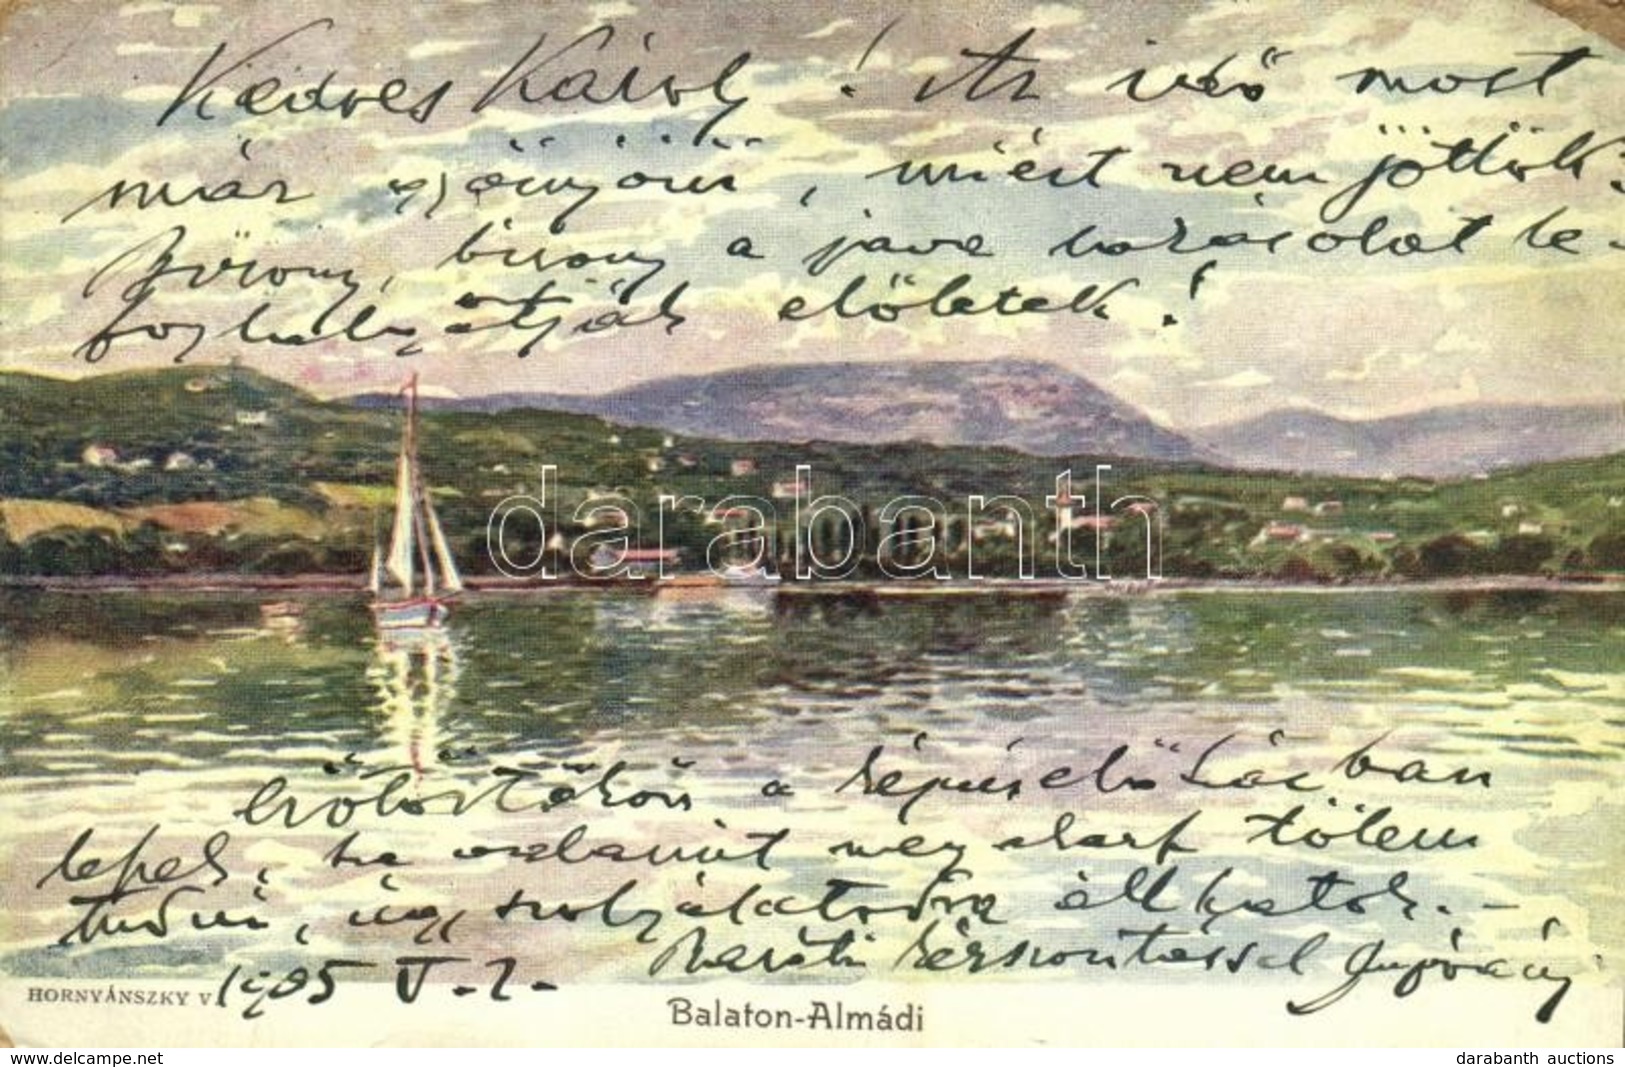 Kedves Károly! Az idő most
már gyönyörü, miért nem jöttök?
bizony a java lakásokat le-
foglalják előletek!
darabanth
a képviselőházban
lepek, ha valamit meg akarsz tőlem
tudni, úgy szolgálatodra állhatok. -
Baráti kézszorítással
1905 V. 2.
HORNYÁNSZKY V.
Balaton-Almádi
www.delcampe.net
darabanth auctions